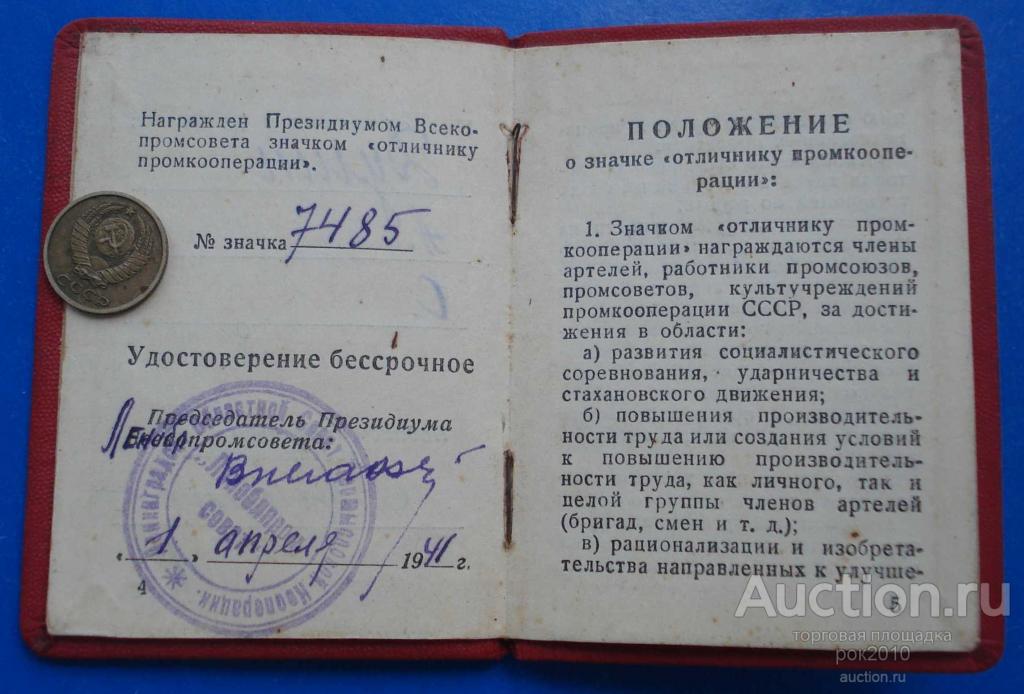 Награжден Президиумом Всеко-
промсовета значком «отличнику
промкооперации».
№ значка 7485
СССР
Удостоверение бессрочное
Председатель Президиума
промсовета:
«1» апреля 1941 г.
4
ПОЛОЖЕНИЕ
о значке «отличнику промкоопе-
рации»:
1. Значком «отличнику пром-
кооперации» награждаются члены
артелей, работники промсоюзов,
промсоветов, культучреждений
промкооперации СССР, за дости-
жения в области:
а) развития социалистического
соревнования, ударничества и
стахановского движения;
б) повышения производитель-
ности труда или создания условий
к повышению производитель-
ности труда, как личного, так и
целой группы членов артелей
(бригад, смен и т. д.);
в) рационализации и изобрета-
тельства направленных к улучше-
5
Auction.ru
торговая площадка
рок2010
auction.ru